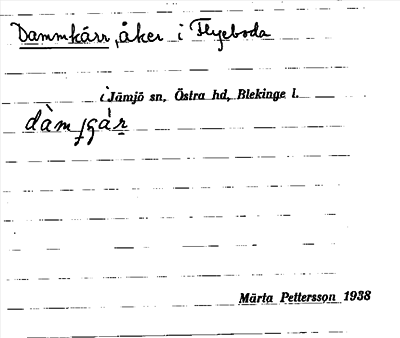 Dammkärr, åker i Flyeboda
i Jämjö sn, Östra hd, Blekinge l.
Märta Pettersson 1938